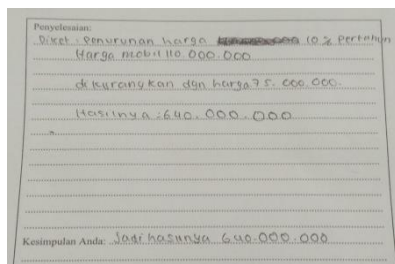 Penyelesaian:
Diket : Penurunan harga 10% Pertahun
Harga mobil 110.000.000
dikurangkan dgn harga 75.000.000.
Hasilnya : 640.000.000
Kesimpulan Anda: Jadi hasilnya 640.000.000